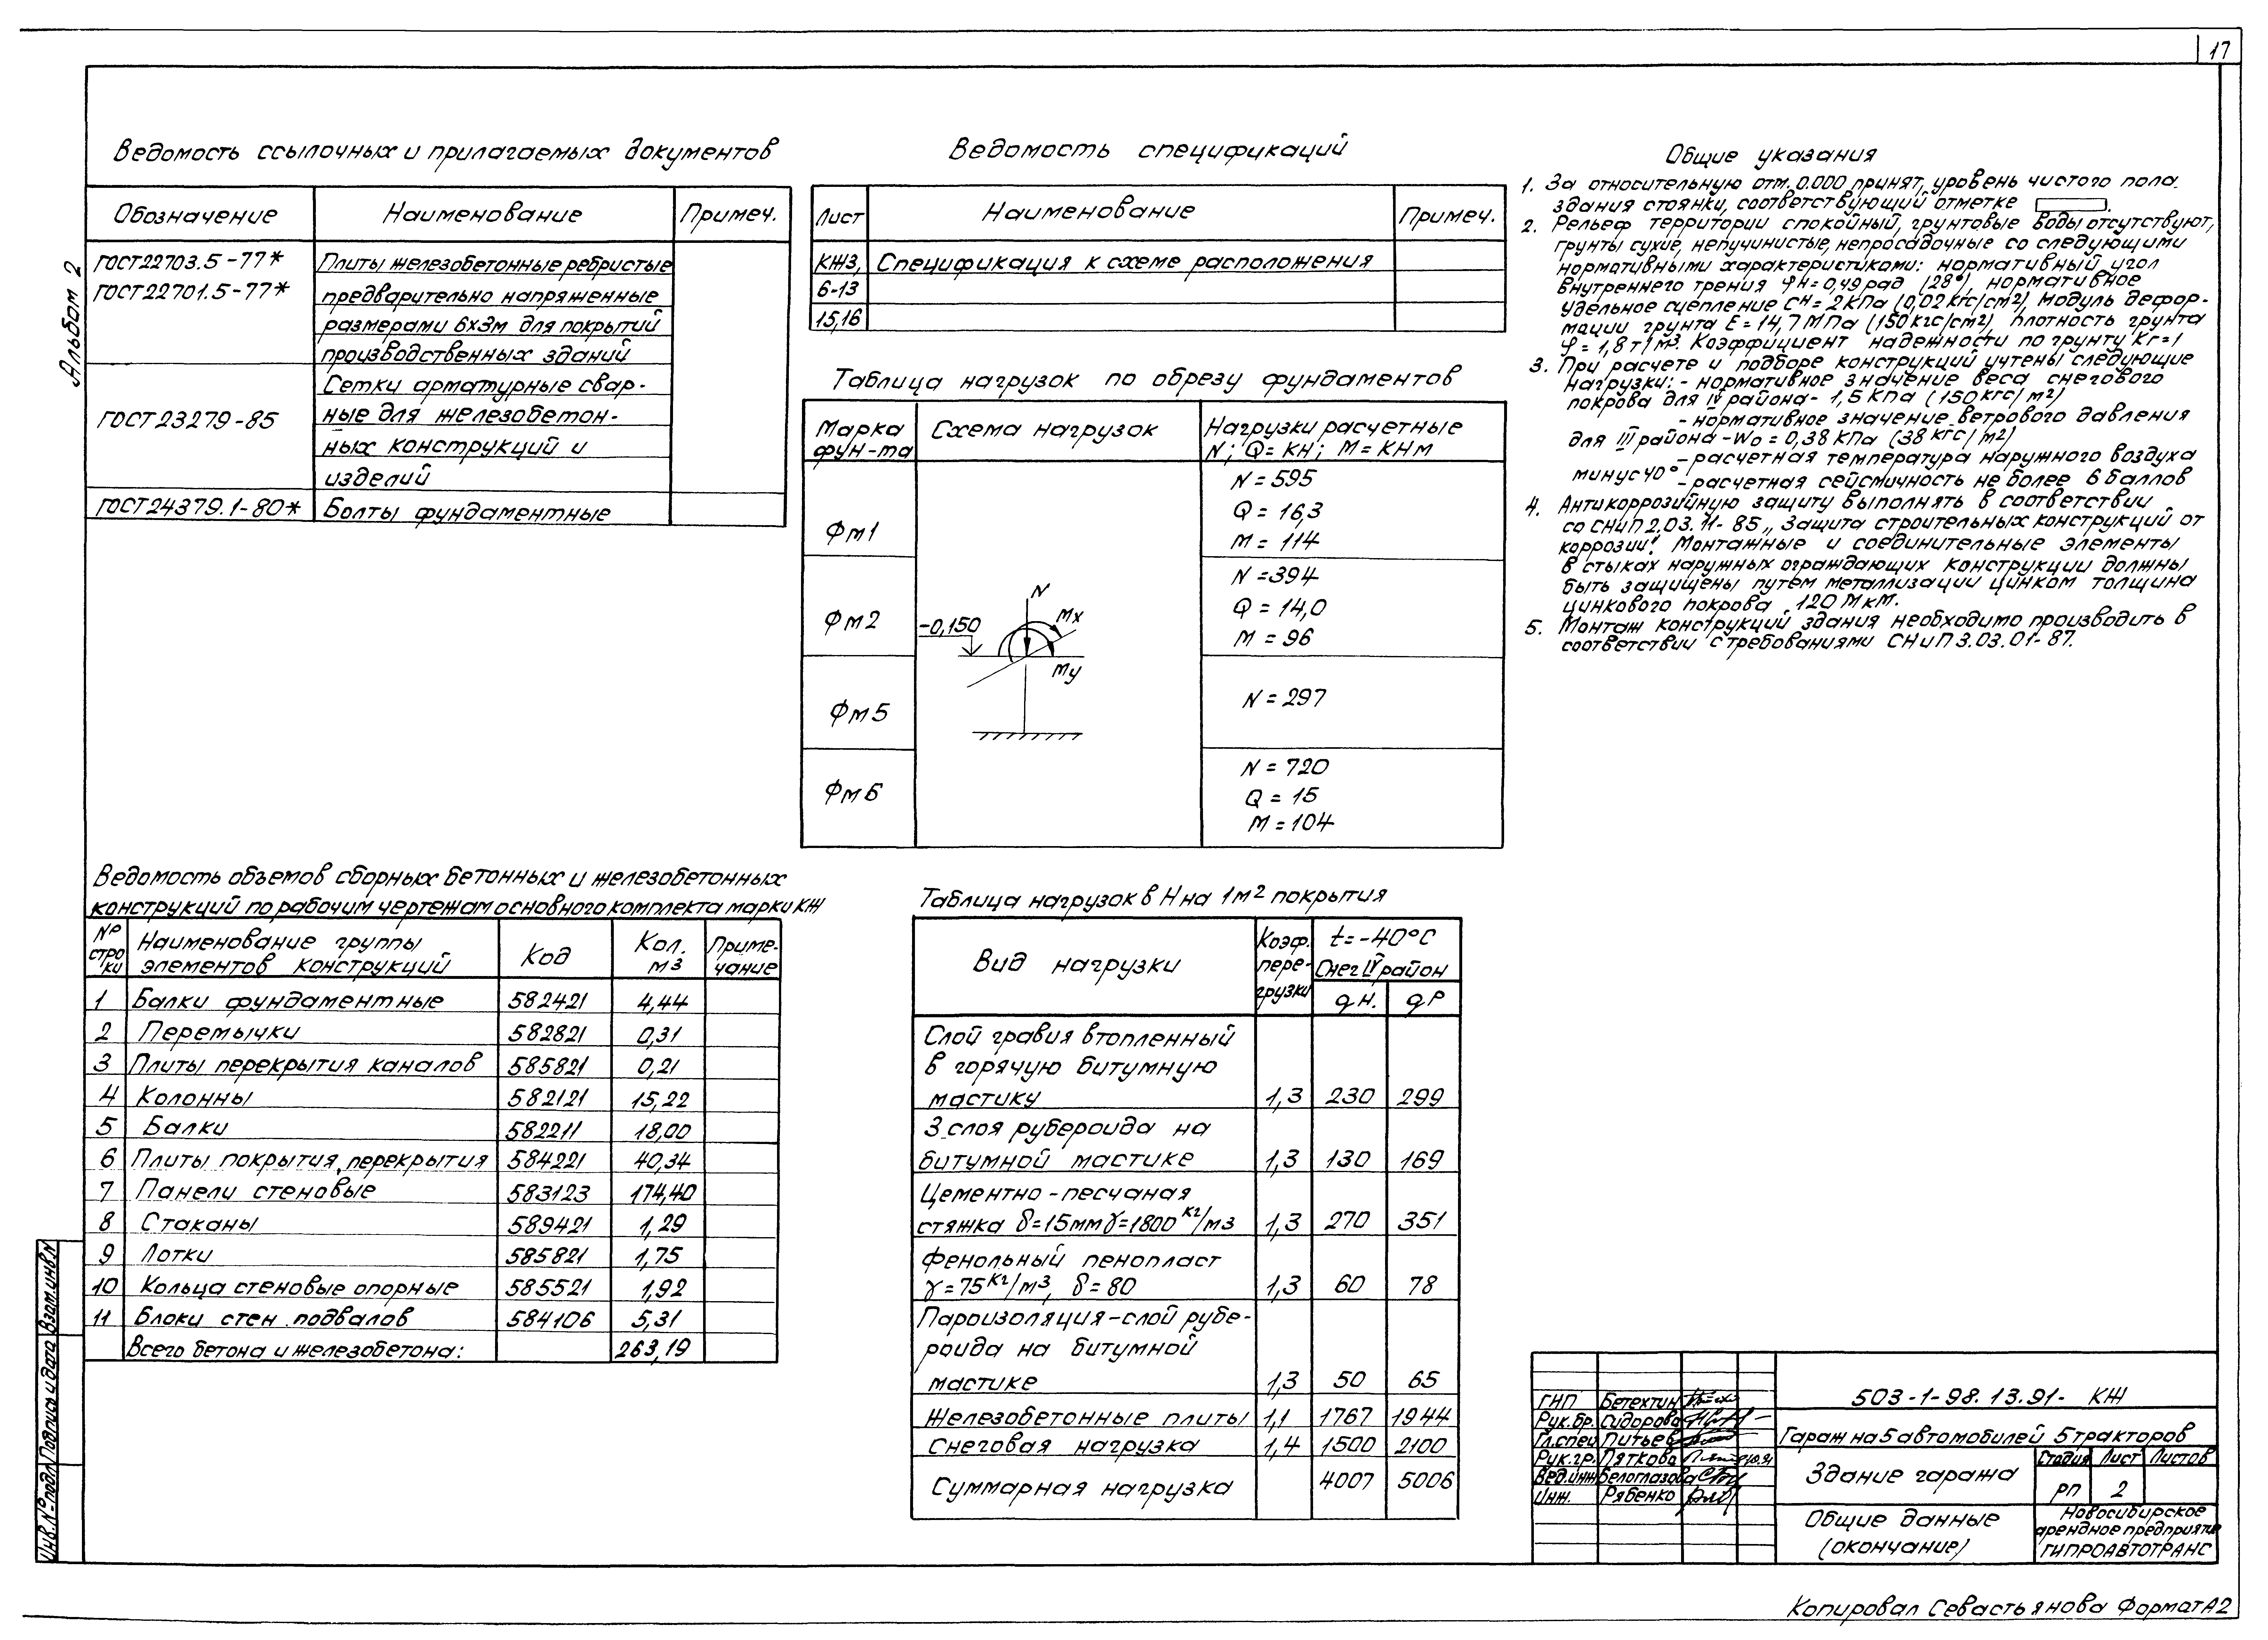 17
Альбом 2
Ведомость ссылочных и прилагаемых документов
Обозначение Наименование Примеч.
ГОСТ 22703.5-77* Плиты железобетонные ребристые
ГОСТ 22701.5-77* предварительно напряженные
размерами 6х3м для покрытий
производственных зданий
Сетки арматурные свар-
ГОСТ 23279-85 ные для железобетон-
ных конструкций и
изделий
ГОСТ 24379.1-80* Болты фундаментные
Ведомость спецификаций
Лист Наименование Примеч.
КЖ3, Спецификация к схеме расположения
6-13
15,16
Таблица нагрузок по обрезу фундаментов
Марка фун-та Схема нагрузок Нагрузки расчетные
N; Q=КН; М=КНм
Фм1
N=595
Q=16,3
М=114
Фм2
N=394
Q=14,0
М=96
Фм5
N=297
Фм6
N=720
Q=15
М=104
N
Мх
-0,150
Му
Общие указания
1. За относительную отм. 0.000 принят уровень чистого пола
здания стоянки, соответствующий отметке
2. Рельеф территории спокойный, грунтовые воды отсутствуют,
грунты сухие, непучинистые, непросадочные со следующими
нормативными характеристиками: нормативный угол
внутреннего трения φн=0,49 рад (28°), нормативное
удельное сцепление Сн=2кПа (0,02 кгс/см2) модуль дефор-
мации грунта Е=14,7МПа (150 кгс/см2) плотность грунта
φ=1,8т/м3. Коэффициент надежности по грунту Кг=1
3. При расчете и подборе конструкций учтены следующие
нагрузки: - нормативное значение веса снегового
покрова для IV района- 1,5кПа (150 кгс/м2)
- нормативное значение ветрового давления
для III района -Wo=0,38кПа (38 кгс/м2)
- расчетная температура наружного воздуха
минус 40°
- расчетная сейсмичность не более 6 баллов
4. Антикоррозийную защиту выполнять в соответствии
со СНиП 2.03.11-85 „Защита строительных конструкций от
коррозии". Монтажные и соединительные элементы
в стыках наружных ограждающих конструкции должны
быть защищены путем металлизации цинком толщина
цинкового покрова 120 Мкм.
5. Монтаж конструкций здания необходимо производить в
соответствии с требованиями СНиП 3.03.01-87.
Ведомость объемов сборных бетонных и железобетонных
конструкций по рабочим чертежам основного комплекта марки КЖ
№ строки Наименование группы элементов конструкций Код Кол. м3 Приме-чание
1 Балки фундаментные 582421 4,44
2 Перемычки 582821 0,31
3 Плиты перекрытия каналов 585821 0,21
4 Колонны 582121 15,22
5 Балки 582211 18,00
6 Плиты покрытия, перекрытия 584221 40,34
7 Панели стеновые 583123 174,40
8 Стаканы 589421 1,29
9 Лотки 585821 1,75
10 Кольца стеновые опорные 585521 1,92
11 Блоки стен подвалов 584106 5,31
Всего бетона и железобетона: 263,19
Таблица нагрузок в Н на 1м2 покрытия
Вид нагрузки Коэф. пере-грузки t=-40°С
Снег IV район
qн. qр
Слой гравия втопленный
в горячую битумную
мастику 1,3 230 299
3 слоя рубероида на
битумной мастике 1,3 130 169
Цементно-песчаная
стяжка δ=15мм γ=1800 кг/м3 1,3 270 351
Фенольный пенопласт
γ=75кг/м3, δ=80 1,3 60 78
Пароизоляция-слой рубе-
роида на битумной
мастике 1,3 50 65
Железобетонные плиты 1,1 1767 1944
Снеговая нагрузка 1,4 1500 2100
Суммарная нагрузка 4007 5006
Инв.№подл. Подпись и дата Взам.инв.№
ГНП Бетехтин
Рук.бр. Сидорова
Гл.спец Питьев
Рук.гр. Пяткова
Вед.инж Белоглазова
Инж. Рябенко
503-1-98.13.91- КЖ
Гараж на 5 автомобилей 5 тракторов
Здание гаража
Стадия Лист Листов
РП 2
Общие данные
(окончание)
Новосибирское
арендное предприятие
ГИПРОАВТОТРАНС
Копировал Севастьянова Формат А2